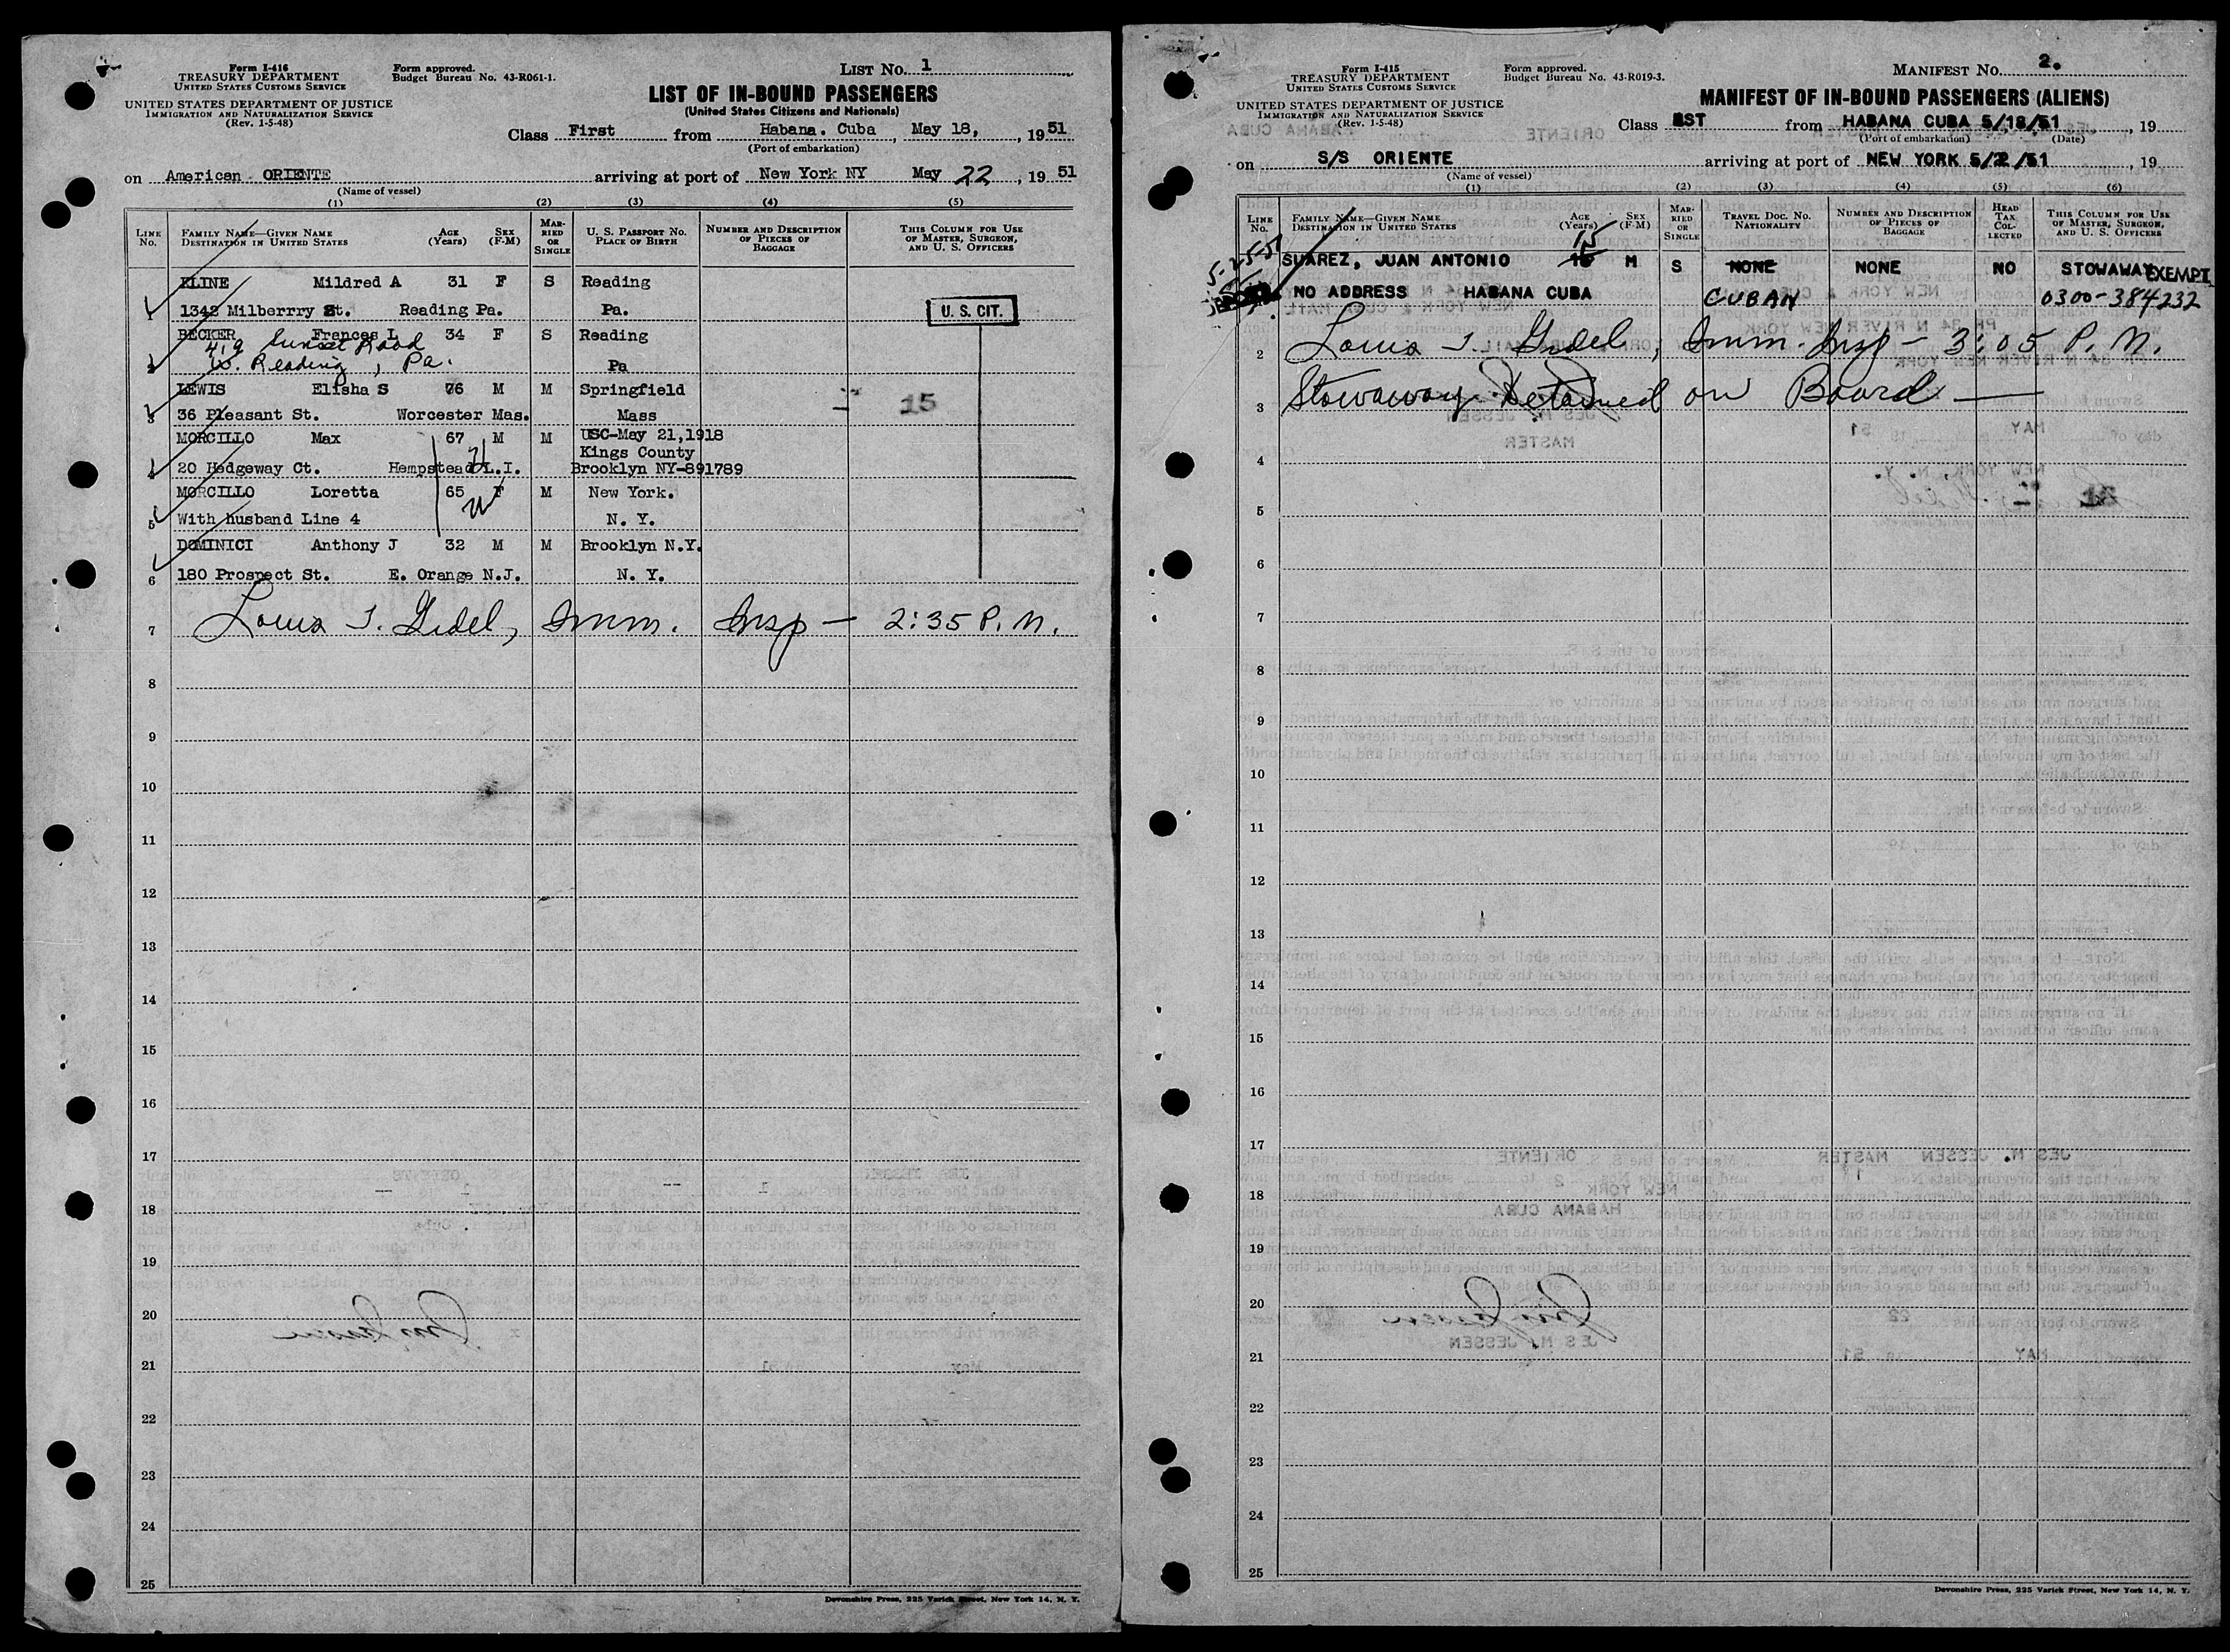 Form I-416
TREASURY DEPARTMENT
UNITED STATES CUSTOMS SERVICE
UNITED STATES DEPARTMENT OF JUSTICE
IMMIGRATION AND NATURALIZATION SERVICE
(Rev. 1-5-48)
Form approved.
Budget Bureau No. 43-R061-1.
LIST No. 1
LIST OF IN-BOUND PASSENGERS
(United States Citizens and Nationals)
Class First from Habana. Cuba, May 18, 1951
(Port of embarkation)
on American ORIENTE arriving at port of New York NY May 22, 1951
(Name of vessel)
(1) (2) (3) (4) (5)
LINE No. FAMILY NAME—GIVEN NAME DESTINATION IN UNITED STATES AGE (Years) SEX (F-M) MARRIED OR SINGLE U. S. PASSPORT NO. PLACE OF BIRTH NUMBER AND DESCRIPTION OF PIECES OF BAGGAGE THIS COLUMN FOR USE OF MASTER, SURGEON, AND U. S. OFFICERS
KLINE Mildred A 31 F S Reading
1 1342 Milberrry St. Reading Pa. Pa. U. S. CIT.
BECKER Frances L 34 F S Reading
419 Sunset Road
2 W. Reading, Pa. Pa
LEWIS Elisha S 76 M M Springfield
15
3 36 Pleasant St. Worcester Mas. Mass
MORCILLO Max 67 M M USC-May 21,1918
Kings County
4 20 Hedgeway Ct. Hempstead L.I. Brooklyn NY-891789
MORCILLO Loretta 65 F M New York.
5 With husband Line 4 N. Y.
DOMINICI Anthony J 32 M M Brooklyn N.Y.
6 180 Prospect St. E. Orange N.J. N. Y.
7 Louis I. Gidel, Imm. Insp — 2:35 P. M.
8
9
10
11
12
13
14
15
16
17
18
19
20
21
22
23
24
25
Devonshire Press, 225 Varick Street, New York 14, N. Y.
Form I-415
TREASURY DEPARTMENT
UNITED STATES CUSTOMS SERVICE
UNITED STATES DEPARTMENT OF JUSTICE
IMMIGRATION AND NATURALIZATION SERVICE
(Rev. 1-5-48)
Form approved.
Budget Bureau No. 43-R019-3.
MANIFEST No. 2.
MANIFEST OF IN-BOUND PASSENGERS (ALIENS)
Class from HABANA CUBA 5/18/51, 19
(Port of embarkation) (Date)
on S/S ORIENTE arriving at port of NEW YORK 5/2 /51, 19
(Name of vessel)
(1) (2) (3) (4) (5) (6)
LINE No. FAMILY NAME—GIVEN NAME DESTINATION IN UNITED STATES AGE (Years) SEX (F-M) MARRIED OR SINGLE TRAVEL DOC. NO. NATIONALITY NUMBER AND DESCRIPTION OF PIECES OF BAGGAGE HEAD TAX COLLECTED THIS COLUMN FOR USE OF MASTER, SURGEON, AND U. S. OFFICERS
15
5-25-51
SUAREZ, JUAN ANTONIO M S NONE NONE NO STOWAWAY EXEMPT
NO ADDRESS HABANA CUBA CUBAN 0300-384232
2 Louis I. Gidel, Imm. Insp — 3:05 P. M.
3 Stowaway Detained on Board —
4
5
6
7
8
9
10
11
12
13
14
15
16
17
18
19
20
21
22
23
24
25
Devonshire Press, 225 Varick Street, New York 14, N. Y.